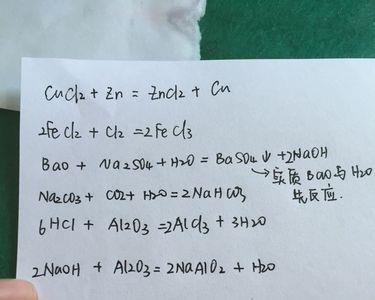 CuCl2 + Zn = ZnCl2 + Cu
2FeCl2 + Cl2 = 2FeCl3
BaO + Na2SO4 + H2O = BaSO4↓ + 2NaOH
→实质BaO与H2O
先反应.
Na2CO3 + CO2 + H2O = 2NaHCO3
6HCl + Al2O3 = 2AlCl3 + 3H2O
2NaOH + Al2O3 = 2NaAlO2 + H2O